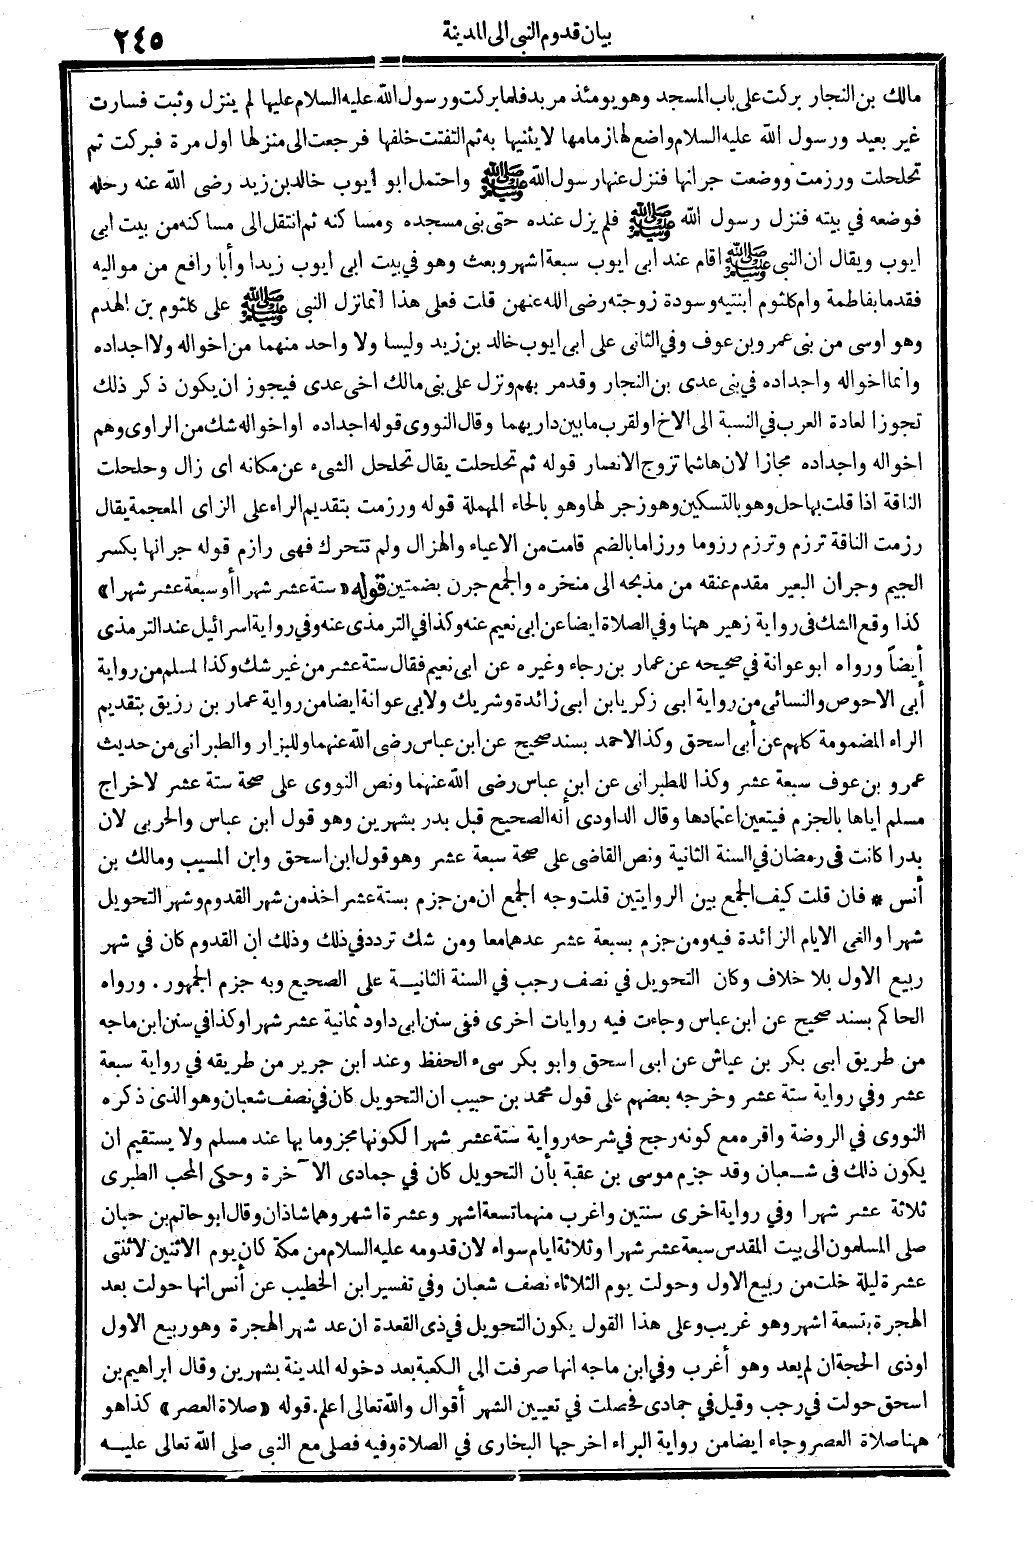 بيان قدوم النبي الى المدينة
٢٤٥
مالك بن النجار بركت على باب المسجد وهو يومئذ مربد فلما بركت ورسول الله عليه السلام عليها لم ينزل وثبت فسارت
غير بعيد ورسول الله عليه السلام واضع لها زمامها لا يثنيها به ثم التفتت خلفها فرجعت الى منزلها اول مرة فبركت ثم
تحلحلت ورزمت ووضعت جرانها فنزل عنها رسول الله ﷺ واحتمل ابو ايوب خالد بن زيد رضى الله عنه رحله
فوضعه في بيته فنزل رسول الله ﷺ فلم يزل عنده حتى بنى مسجده ومساكنه ثم انتقل الى مساكنه من بيت ابى
ايوب ويقال ان النبي ﷺ اقام عند ابى ايوب سبعة اشهر وبعث وهو في بيت ابى ايوب زيدا وأبا رافع من مواليه
فقدما بفاطمة وام كلثوم ابنتيه وسودة زوجته رضى الله عنهن قلت فعلى هذا انما نزل النبى ﷺ على كلثوم بن الهدم
وهو اوسى من بنى عمرو بن عوف وفي الثانى على ابى ايوب خالد بن زيد وليسا ولا واحد منهما من اخواله ولا اجداده
وانما اخواله واجداده في بنى عدى بن النجار وقدمر بهم ونزل على بنى مالك اخى عدى فيجوز ان يكون ذكر ذلك
تجوزا لعادة العرب في النسبة الى الاخ او لقرب ما بين داريهما وقال النووى قوله اجداده او اخواله شك من الراوى وهم
اخواله واجداده مجازا لان هاشما تزوج الانصار قوله ثم تحلحلت يقال تحلحل الشىء عن مكانه اى زال وحلحلت
الناقة اذا قلت بها حل وهو بالتسكين وهو زجر لها وهو بالحاء المهملة قوله ورزمت بتقديم الراء على الزاى المعجمة يقال
رزمت الناقة ترزم وترزم رزوما ورزاما بالضم قامت من الاعياء والهزال ولم تتحرك فهى رازم قوله جرانها بكسر
الجيم وجران البعير مقدم عنقه من مذبحه الى منخره والجمع جرن بضمتين قوله «ستة عشر شهرا أو سبعة عشر شهرا»
كذا وقع الشك في رواية زهير ههنا وفي الصلاة ايضا عن ابى نعيم عنه وكذا في الترمذى عنه وفي رواية اسرائيل عند الترمذى
أيضاً ورواه ابو عوانة في صحيحه عن عمار بن رجاء وغيره عن ابى نعيم فقال ستة عشر من غير شك وكذا لمسلم من رواية
أبى الاحوص والنسائى من رواية ابى زكريا بن ابى زائدة وشريك ولابى عوانة ايضا من رواية عمار بن رزيق بتقديم
الراء المضمومة كلهم عن أبى اسحق وكذا لاحمد بسند صحيح عن ابن عباس رضى الله عنهما وللبزار والطبرانى من حديث
عمرو بن عوف سبعة عشر وكذا للطبرانى عن ابن عباس رضى الله عنهما ونص النووى على صحة ستة عشر لاخراج
مسلم اياها بالجزم فيتعين اعتمادها وقال الداودى أنه الصحيح قبل بدر بشهرين وهو قول ابن عباس والحربى لان
بدرا كانت في رمضان في السنة الثانية ونص القاضى على صحة سبعة عشر وهو قول ابن اسحق وابن المسيب ومالك بن
أنس * فان قلت كيف الجمع بين الروايتين قلت وجه الجمع ان من جزم بستة عشر اخذ من شهر القدوم وشهر التحويل
شهرا والغى الايام الزائدة فيه ومن جزم بسبعة عشر عدهما معا ومن شك تردد في ذلك وذلك ان القدوم كان في شهر
ربيع الاول بلا خلاف وكان التحويل في نصف رجب في السنة الثانية على الصحيح وبه جزم الجمهور . ورواه
الحاكم بسند صحيح عن ابن عباس وجاءت فيه روايات اخرى ففى سنن ابى داود ثمانية عشر شهرا وكذا في سنن ابن ماجه
من طريق ابى بكر بن عياش عن ابى اسحق وابو بكر سىء الحفظ وعند ابن جرير من طريقه في رواية سبعة
عشر وفي رواية ستة عشر وخرجه بعضهم على قول محمد بن حبيب ان التحويل كان في نصف شعبان وهو الذى ذكره
النووى في الروضة واقره مع كونه رجح في شرحه رواية ستة عشر شهرا لكونها مجزوما بها عند مسلم ولا يستقيم ان
يكون ذلك فى شعبان وقد جزم موسى بن عقبة بأن التحويل كان في جمادى الآخرة وحكى المحب الطبرى
ثلاثة عشر شهرا وفي رواية اخرى سنتين واغرب منهما تسعة اشهر وعشرة اشهر وهما شاذان وقال ابو حاتم بن حبان
صلى المسلمون الى بيت المقدس سبعة عشر شهرا وثلاثة ايام سواء لان قدومه عليه السلام من مكة كان يوم الاثنين لاثنتى
عشرة ليلة خلت من ربيع الاول وحولت يوم الثلاثاء نصف شعبان وفي تفسير ابن الخطيب عن أنس انها حولت بعد
الهجرة بتسعة اشهر وهو غريب وعلى هذا القول يكون التحويل في ذى القعدة ان عد شهر الهجرة وهو ربيع الاول
اوذى الحجة ان لم يعد وهو أغرب وفي ابن ماجه انها صرفت الى الكعبة بعد دخوله المدينة بشهرين وقال ابراهيم بن
اسحق حولت في رجب وقيل في جمادى فحصلت في تعيين الشهر أقوال والله تعالى اعلم. قوله «صلاة العصر» كذا هو
ههنا صلاة العصر وجاء ايضا من رواية البراء اخرجها البخارى في الصلاة وفيه فصلى مع النبى صلى الله تعالى عليه